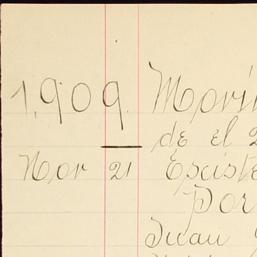 1,909. Movi
de el 2
Nov 21 Exciste
Por
Juan